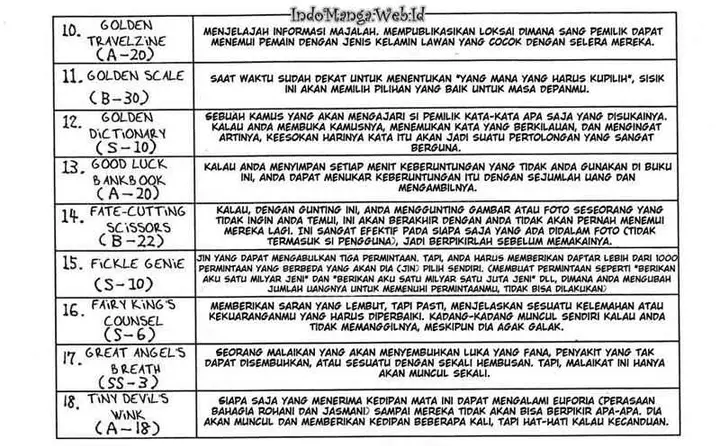 IndoManga.Web.Id
10. GOLDEN
TRAVELZINE
(A-20)
MENJELAJAH INFORMASI MAJALAH. MEMPUBLIKASIKAN LOKSAI DIMANA SANG PEMILIK DAPAT
MENEMUI PEMAIN DENGAN JENIS KELAMIN LAWAN YANG COCOK DENGAN SELERA MEREKA.
11. GOLDEN SCALE
(B-30)
SAAT WAKTU SUDAH DEKAT UNTUK MENENTUKAN "YANG MANA YANG HARUS KUPILIH", SISIK
INI AKAN MEMILIH PILIHAN YANG BAIK UNTUK MASA DEPANMU.
12. GOLDEN
DICTIONARY
(S-10)
SEBUAH KAMUS YANG AKAN MENGAJARI SI PEMILIK KATA-KATA APA SAJA YANG DISUKAINYA.
KALAU ANDA MEMBUKA KAMUSNYA, MENEMUKAN KATA YANG BERKILAUAN, DAN MENGINGAT
ARTINYA, KEESOKAN HARINYA KATA ITU AKAN JADI SUATU PERTOLONGAN YANG SANGAT
BERGUNA.
13. GOOD LUCK
BANKBOOK
(A-20)
KALAU ANDA MENYIMPAN SETIAP MENIT KEBERUNTUNGAN YANG TIDAK ANDA GUNAKAN DI BUKU
INI, ANDA DAPAT MENUKAR KEBERUNTUNGAN ITU DENGAN SEJUMLAH UANG DAN
MENGAMBILNYA.
14. FATE-CUTTING
SCISSORS
(B-22)
KALAU, DENGAN GUNTING INI, ANDA MENGGUNTING GAMBAR ATAU FOTO SESEORANG YANG
TIDAK INGIN ANDA TEMUI, INI AKAN BERAKHIR DENGAN ANDA TIDAK AKAN PERNAH MENEMUI
MEREKA LAGI. INI SANGAT EFEKTIF PADA SIAPA SAJA YANG ADA DIDALAM FOTO (TIDAK
TERMASUK SI PENGGUNA), JADI BERPIKIRLAH SEBELUM MEMAKAINYA.
15. FICKLE GENIE
(S-10)
JIN YANG DAPAT MENGABULKAN TIGA PERMINTAAN. TAPI, ANDA HARUS MEMBERIKAN DAFTAR LEBIH DARI 1000
PERMINTAAN YANG BERBEDA YANG AKAN DIA (JIN) PILIH SENDIRI. (MEMBUAT PERMINTAAN SEPERTI "BERIKAN
AKU SATU MILYAR JENI" DAN "BERIKAN AKU SATU MILYAR SATU JUTA JENI" DLL, DIMANA ANDA MENGUBAH
JUMLAH UANGNYA UNTUK MEMENUHI PERMINTAANMU, TIDAK BISA DILAKUKAN)
16. FAIRY KING'S
COUNSEL
(S-6)
MEMBERIKAN SARAN YANG LEMBUT, TAPI PASTI, MENJELASKAN SESUATU KELEMAHAN ATAU
KEKUARANGANMU YANG HARUS DIPERBAIKI. KADANG-KADANG MUNCUL SENDIRI KALAU ANDA
TIDAK MEMANGGILNYA, MESKIPUN DIA AGAK GALAK.
17. GREAT ANGEL'S
BREATH
(SS-3)
SEORANG MALAIKAN YANG AKAN MENYEMBUHKAN LUKA YANG FANA, PENYAKIT YANG TAK
DAPAT DISEMBUHKAN, ATAU SESUATU DENGAN SEKALI HEMBUSAN. TAPI, MALAIKAT INI HANYA
AKAN MUNCUL SEKALI.
18. TINY DEVIL'S
WINK
(A-18)
SIAPA SAJA YANG MENERIMA KEDIPAN MATA INI DAPAT MENGALAMI EUFORIA (PERASAAN
BAHAGIA ROHANI DAN JASMANI) SAMPAI MEREKA TIDAK AKAN BISA BERPIKIR APA-APA. DIA
AKAN MUNCUL DAN MEMBERIKAN KEDIPAN BEBERAPA KALI, TAPI HAT-HATI KALAU KECANDUAN.